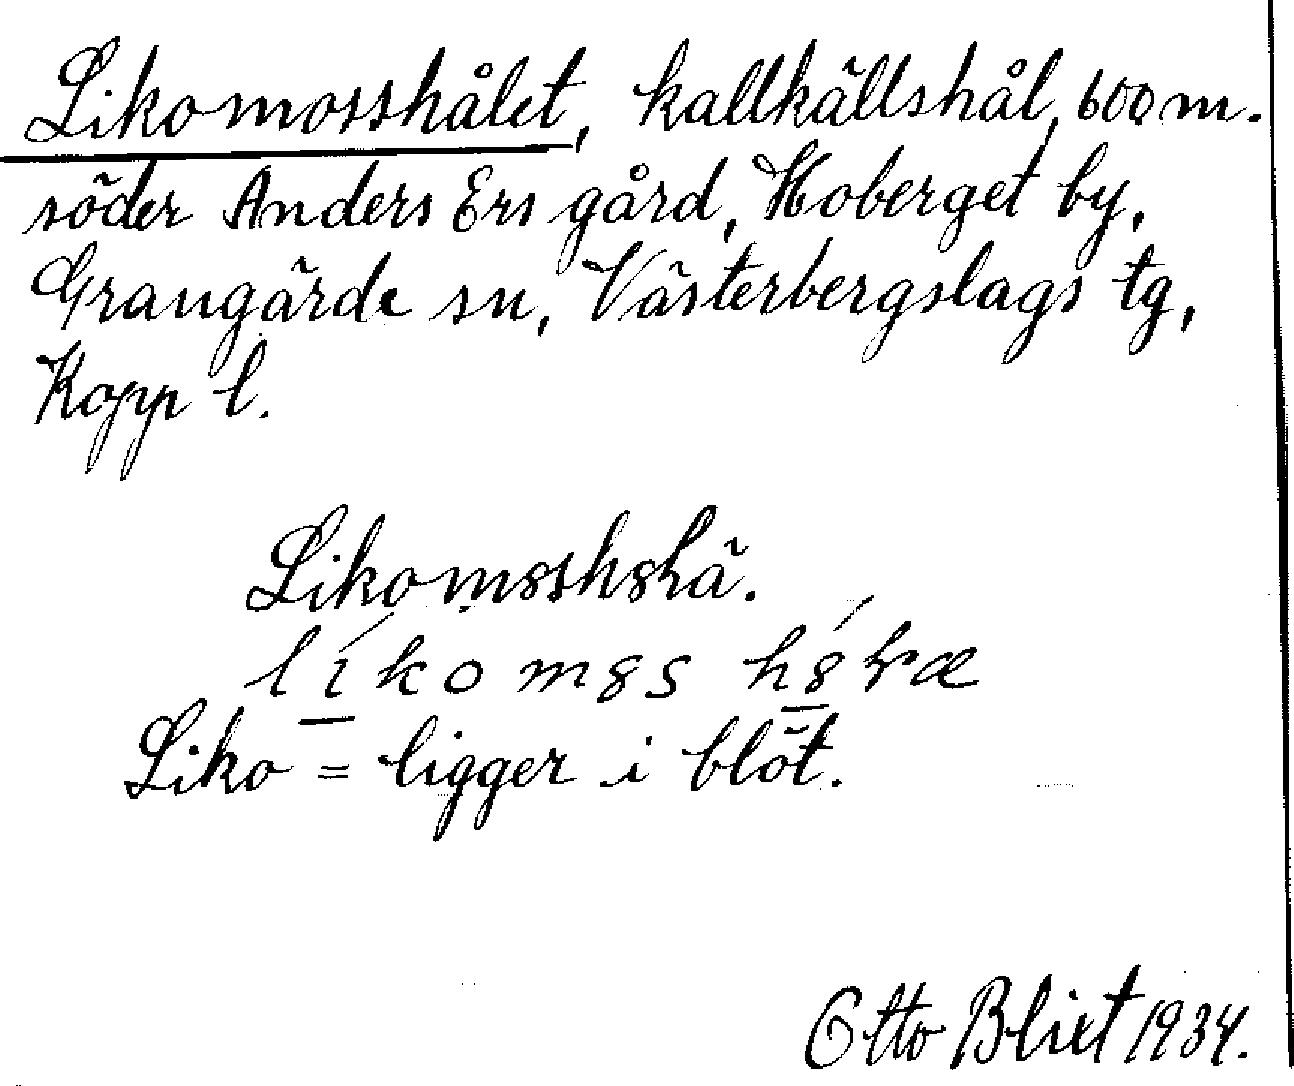 Likomosshålet, kallkällshål, 600 m.
söder Anders Ers gård, Hoberget by,
Grangärde sn, Västerbergslags tg,
Kopp l.
líkomȣs hȣ́ɽæ
Liko = ligger i blöt.
Otto Blixt 1934.